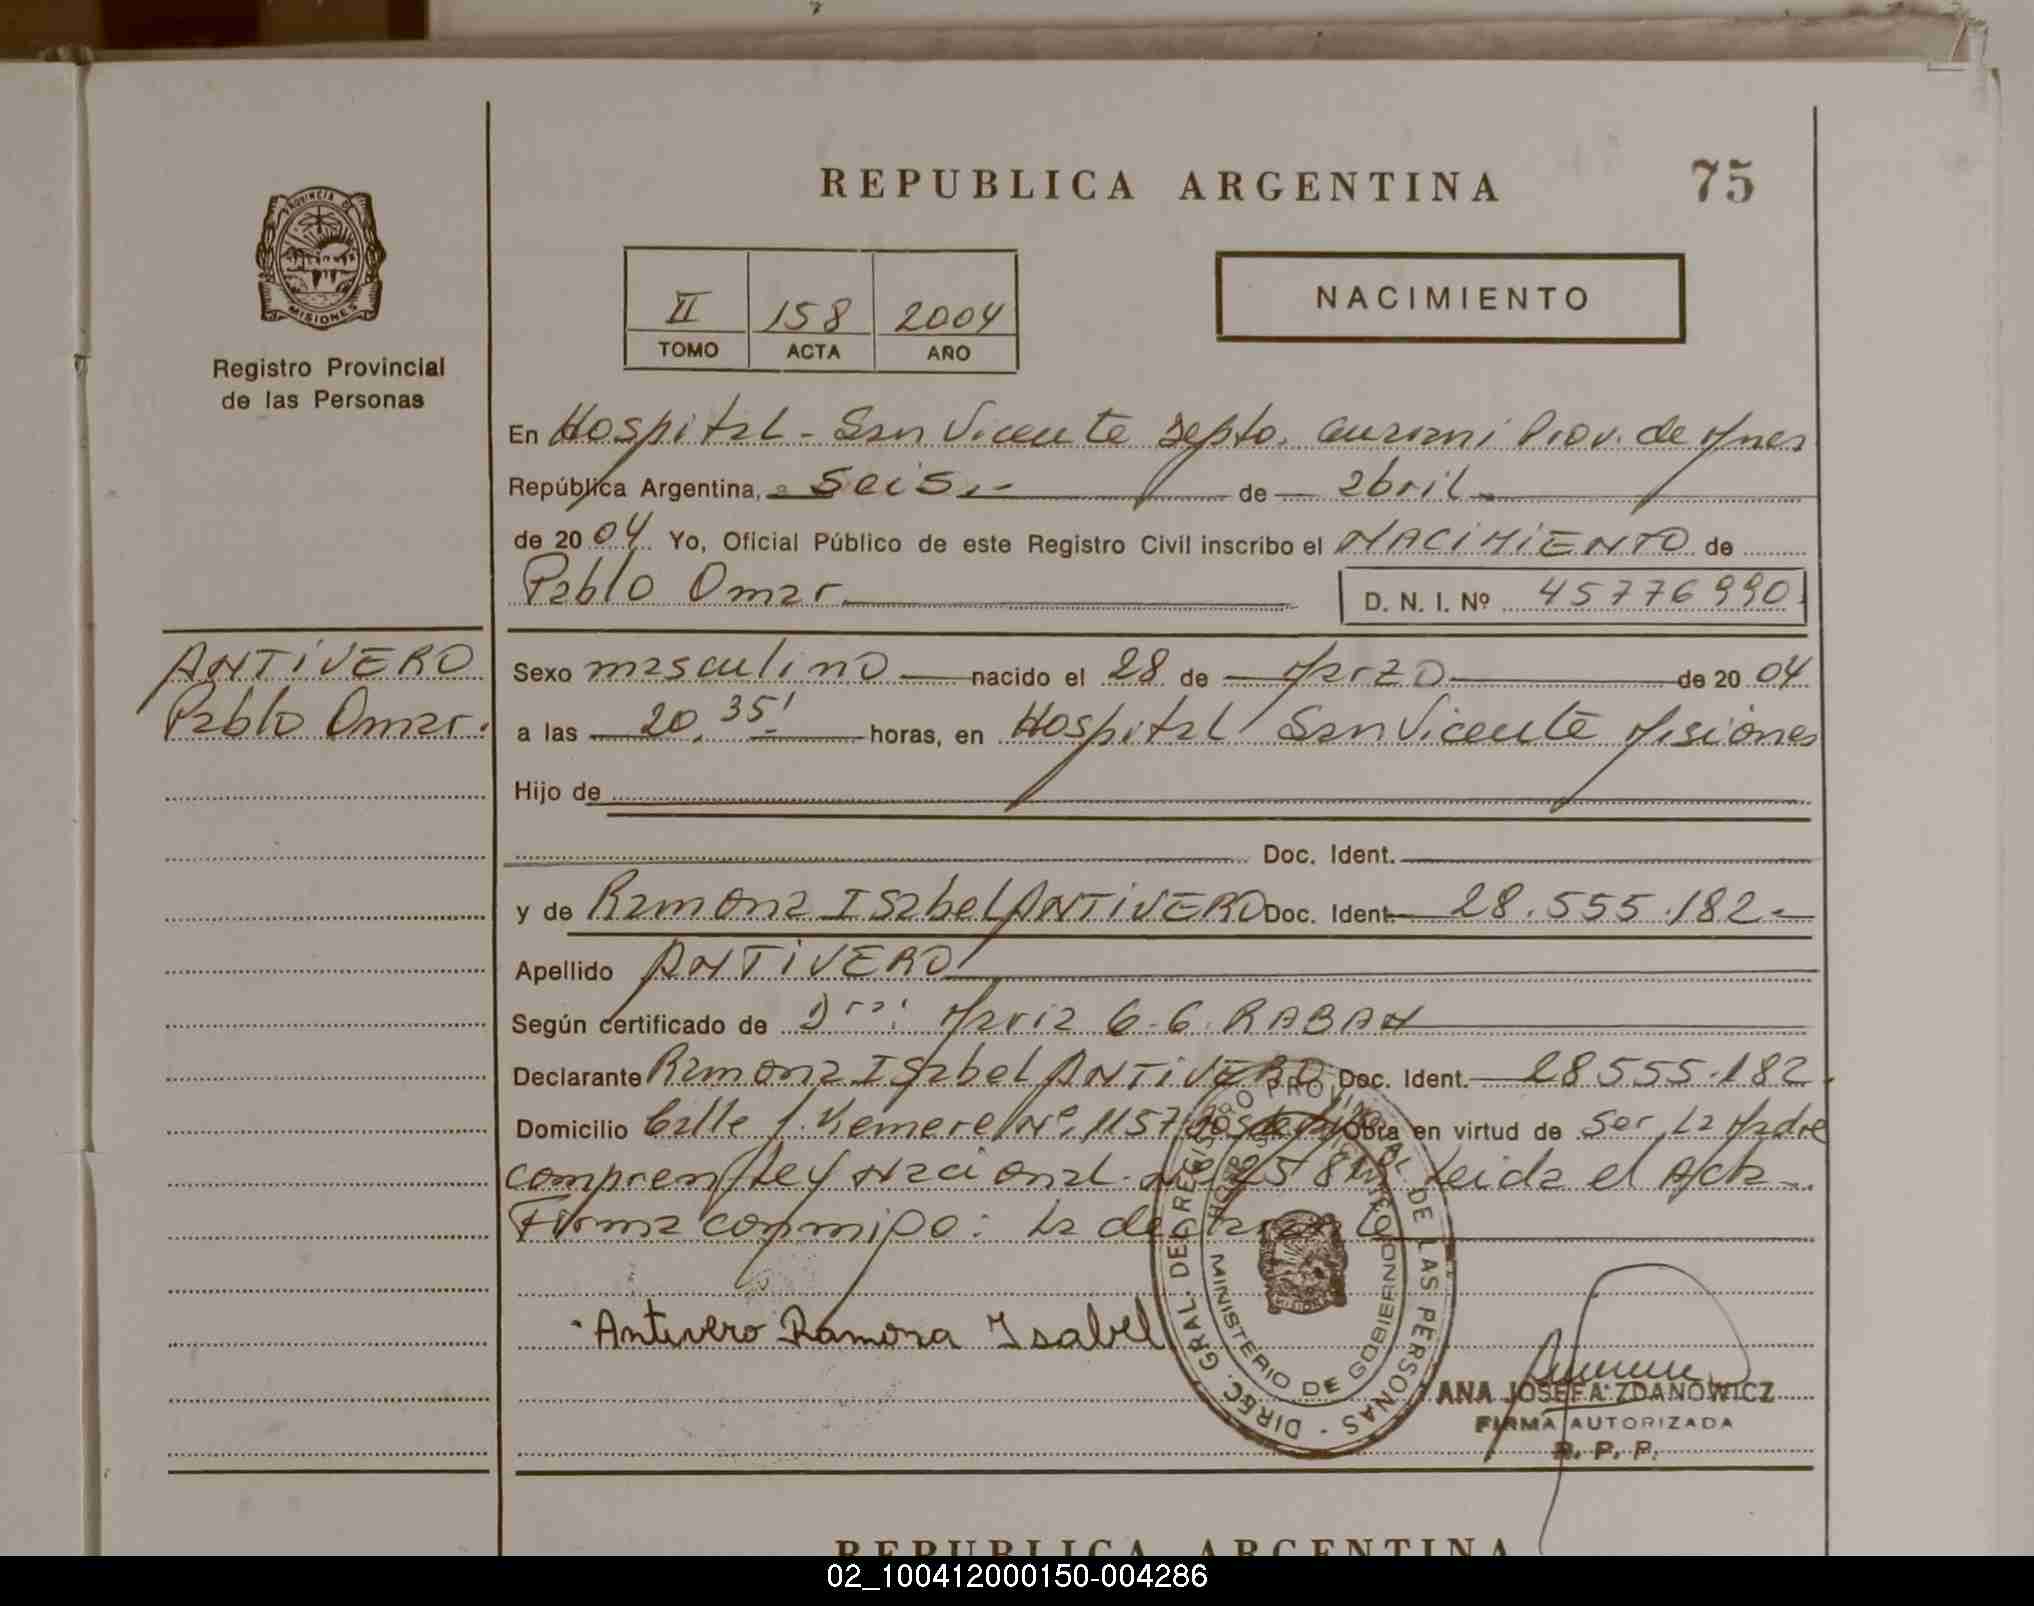 REPUBLICA ARGENTINA
75
PROVINCIA DE MISIONES
Registro Provincial
de las Personas
II 158 2004
TOMO ACTA AÑO
NACIMIENTO
En Hospital - San Vicente Depto. Guarani Prov. de Mnes
República Argentina, a seis.- de abril
de 2004 Yo, Oficial Público de este Registro Civil inscribo el NACIMIENTO de
Pablo Omar
D. N. I. Nº 45776990
ANTIVERO
Pablo Omar.
Sexo masculino nacido el 28 de Marzo de 2004
a las 20. 35' horas, en Hospital San Vicente Misiones
Hijo de
Doc. Ident.
y de Ramona Isabel ANTIVERO Doc. Ident. 28.555.182-
Apellido ANTIVERO
Según certificado de Dra. Maria G. G. RABAN
Declarante Ramona Isabel ANTIVERO Doc. Ident. 28555.182.
Domicilio Calle J. Kemerer Nº. 1157 Obra en virtud de Ser La Madre
compren Ley Nacional Leida el Acta-
Firma conmigo: La declarante
Antivero Ramona Isabel
DIREC. GRAL. DEL REGISTRO PROVINCIAL DE LAS PERSONAS -
MINISTERIO DE GOBIERNO
ANA JOSEFA ZDANOWICZ
FIRMA AUTORIZADA
R. P. P.
REPUBLICA ARGENTINA
02_100412000150-004286